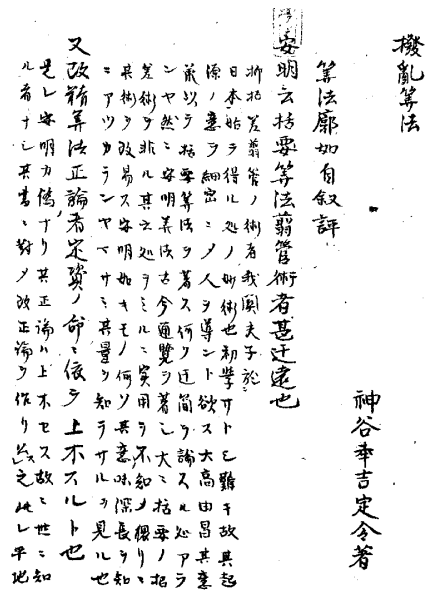 撥亂算法
神谷幸吉定令著
算法廓如自叙評
安明云括要算法翦管術者甚迂遠也
抑括差翦管ノ術者我関夫子於
日本始テ得ル処ノ妙術也初学サトシ難キ故其起
源ノ意ヲ細密ニシメ人ヲ導ント欲ス大高由昌其意
ヲ以テ括要算法ヲ著ス何ソ迂簡ヲ論スル処アラ
ンヤ然ニ安明算法古今通覧ヲ著シ大ニ括要ノ招
差術ヲ非ル其云処ヲミルニ実用ヲ不知メ猥リニ
其術ヲ改易ス安明如キモノ何ソ其意味深長ヲ知
ニアツカランヤマサニ其量ヲ知ラサルヲ見ル也
又改精算法正論者定資ノ命ニ依テ上木スルト也
是レ安明カ偽ナリ其正論ハ上木セス故ニ世ニ知
ル者ナシ其書ニ対メ改正論ヲ作リ